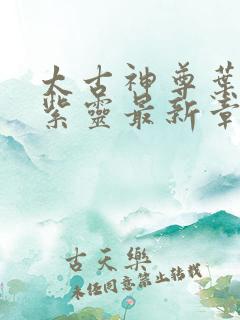 太古神尊葉
紫靈最新章
古天樂
未經同意禁止轉載